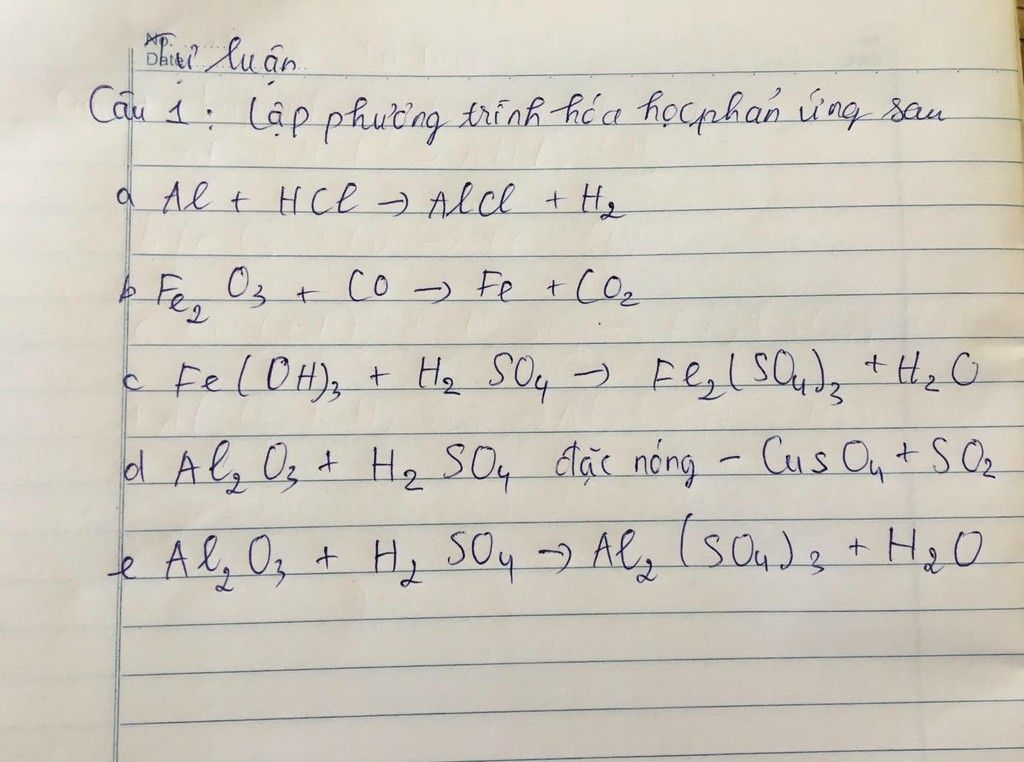 Tự luận
Câu 1: Lập phương trình hóa học phản ứng sau
a Al + HCl → AlCl + H₂
b Fe₂O₃ + CO → Fe + CO₂
c Fe(OH)₃ + H₂SO₄ → Fe₂(SO₄)₃ + H₂O
d Al₂O₃ + H₂SO₄ đặc nóng - CusO₄ + SO₂
e Al₂O₃ + H₂SO₄ → Al₂(SO₄)₃ + H₂O